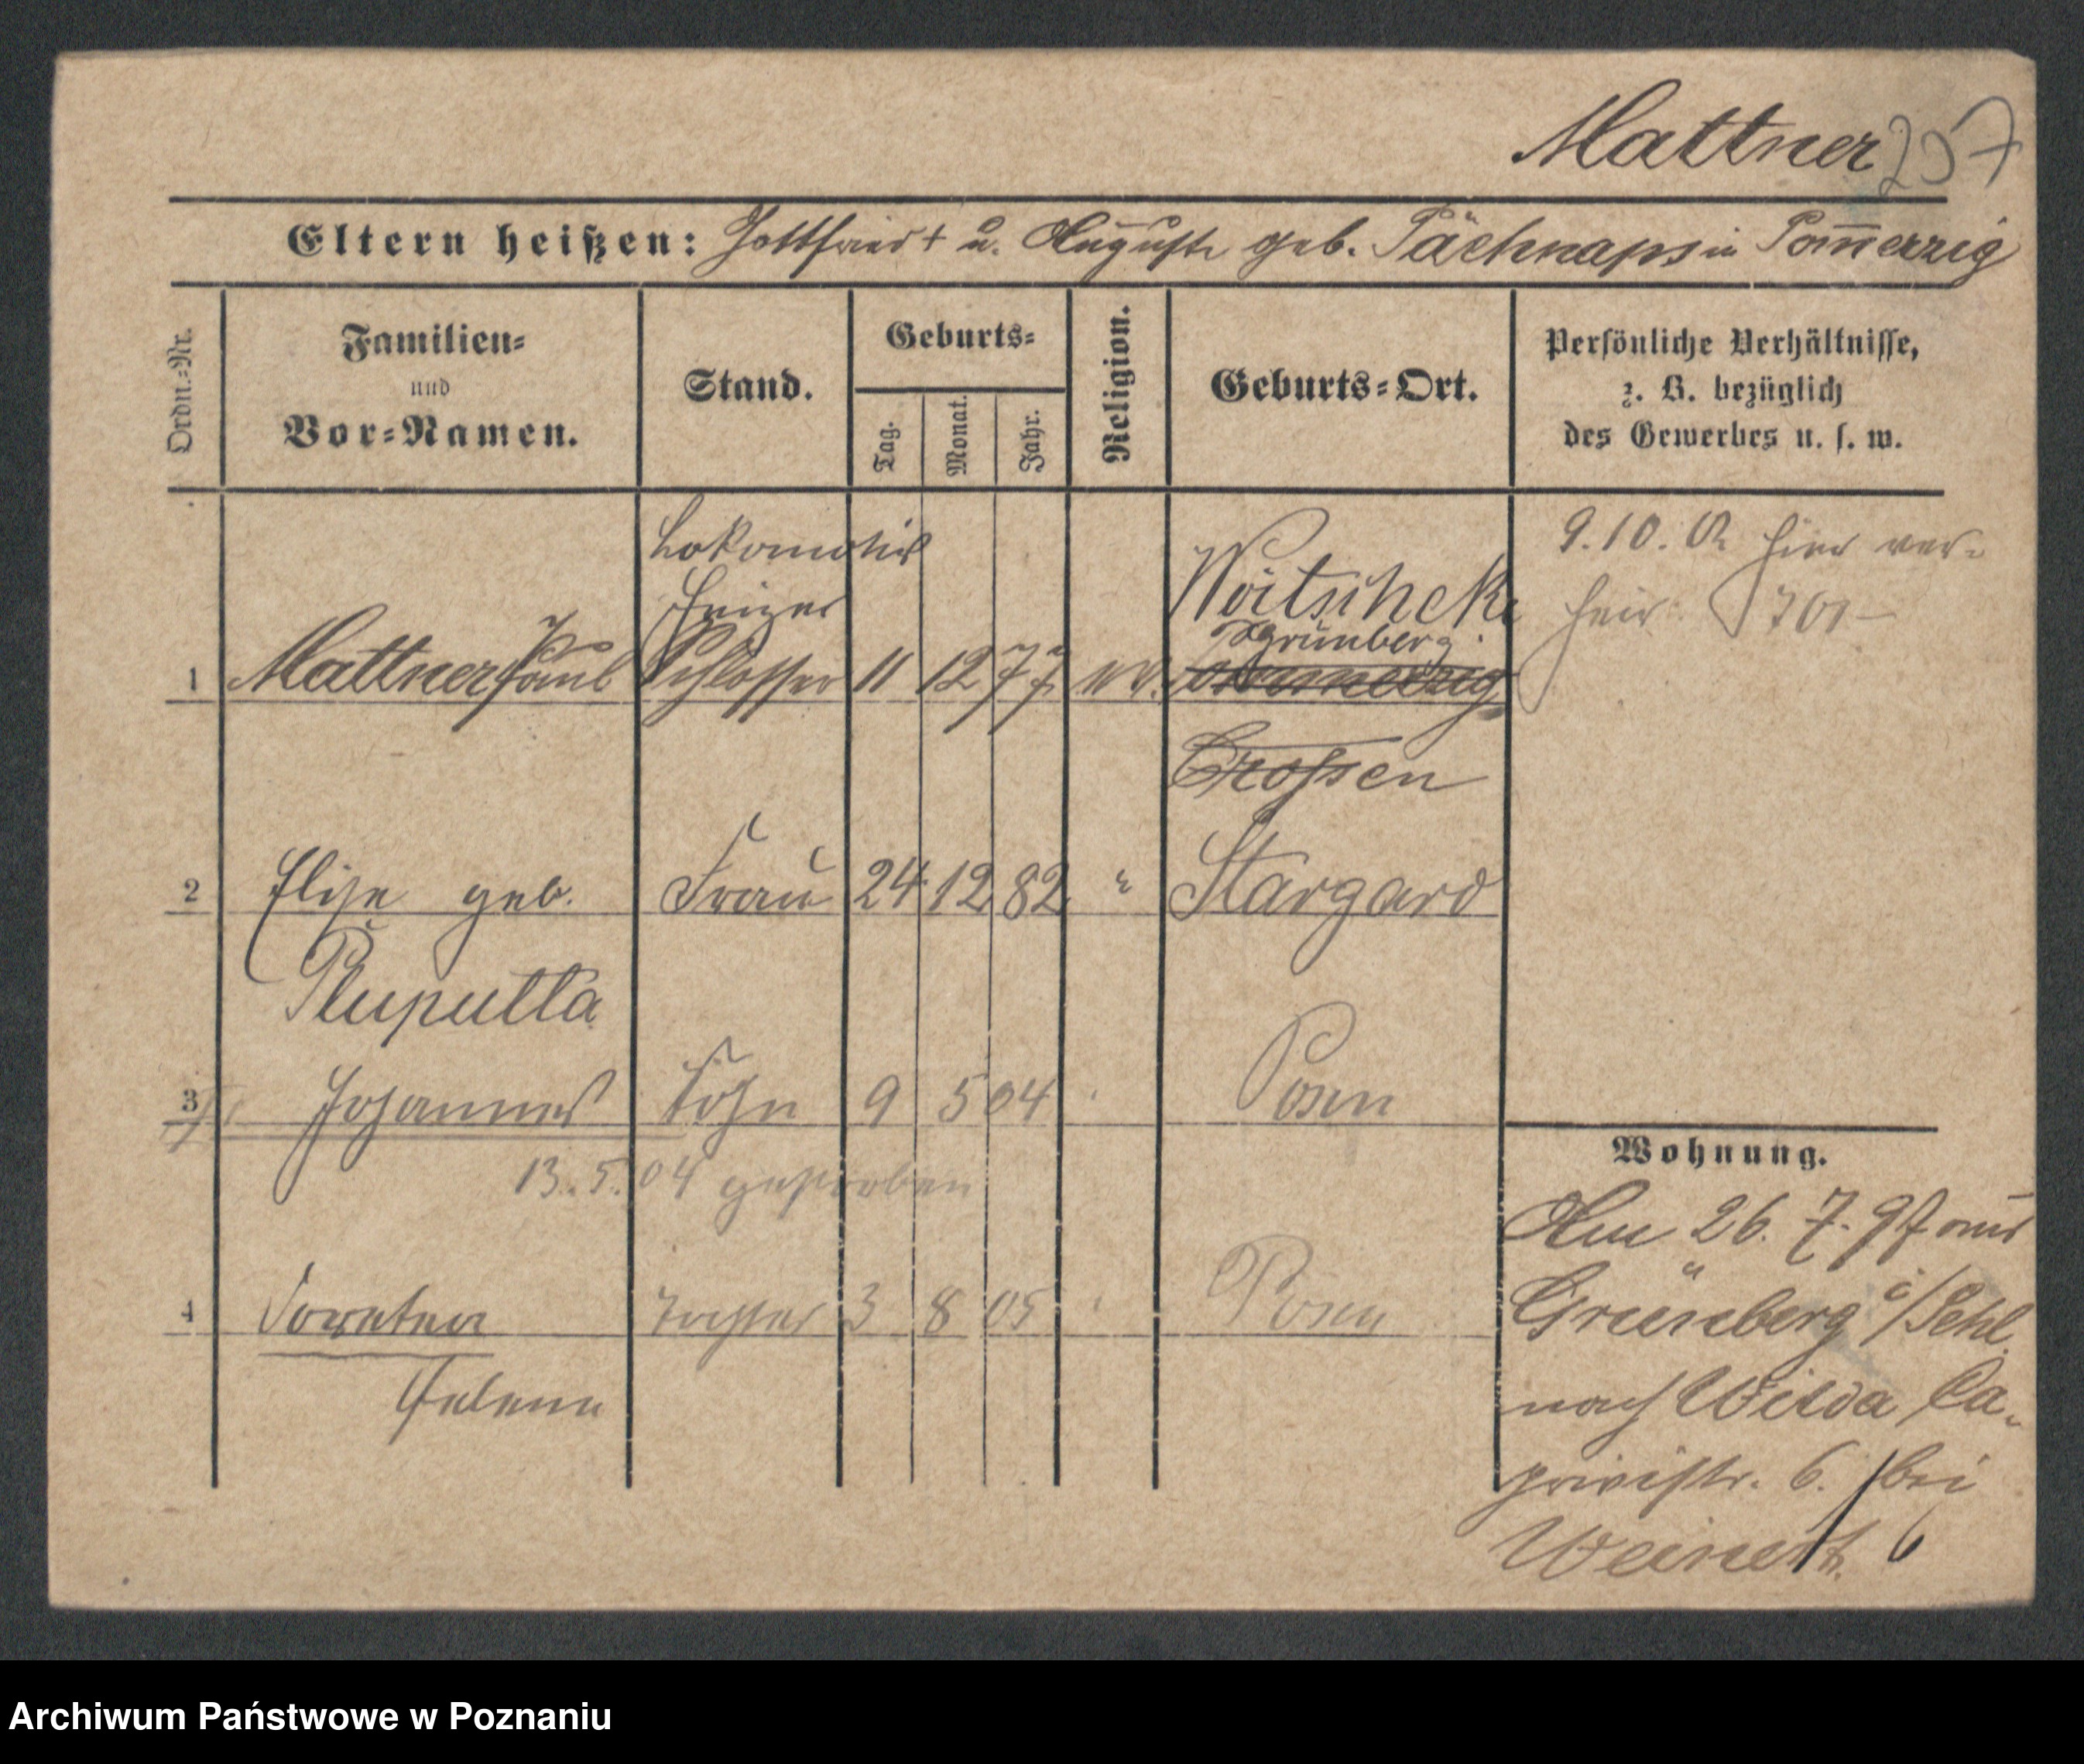 Mattner 257
Eltern heißen: Gottfried † u. Auguste geb. Pächnaps in Pom̅erzig
Ordn.-Nr.
Familien-
und
Vor-Namen.
Stand.
Geburts-
Tag.
Monat.
Jahr.
Religion.
Geburts-Ort.
Persönliche Verhältnisse,
z. B. bezüglich
des Gewerbes u. s. w.
Lokomotiv
Heizer
Woitscheke
Grünberg
9.10.02 hier ver-
heir.
1 Mattner Paul Schlosser 11 12 77 ev. Pommerzig
Crossen
2 Elise geb. Frau 24 12 82 " Stargard
Pluputta
3 Johannes Sohn 9 5 04 Posen
13.5.04 gestorben
4 Dorothea Tochter 3 8 05 Posen
Helene
Wohnung.
Am 26.7.97 aus
Grünberg i/Schl.
nach Wilda Ca-
privistr. 6. bei
Weinert. 6
Archiwum Państwowe w Poznaniu